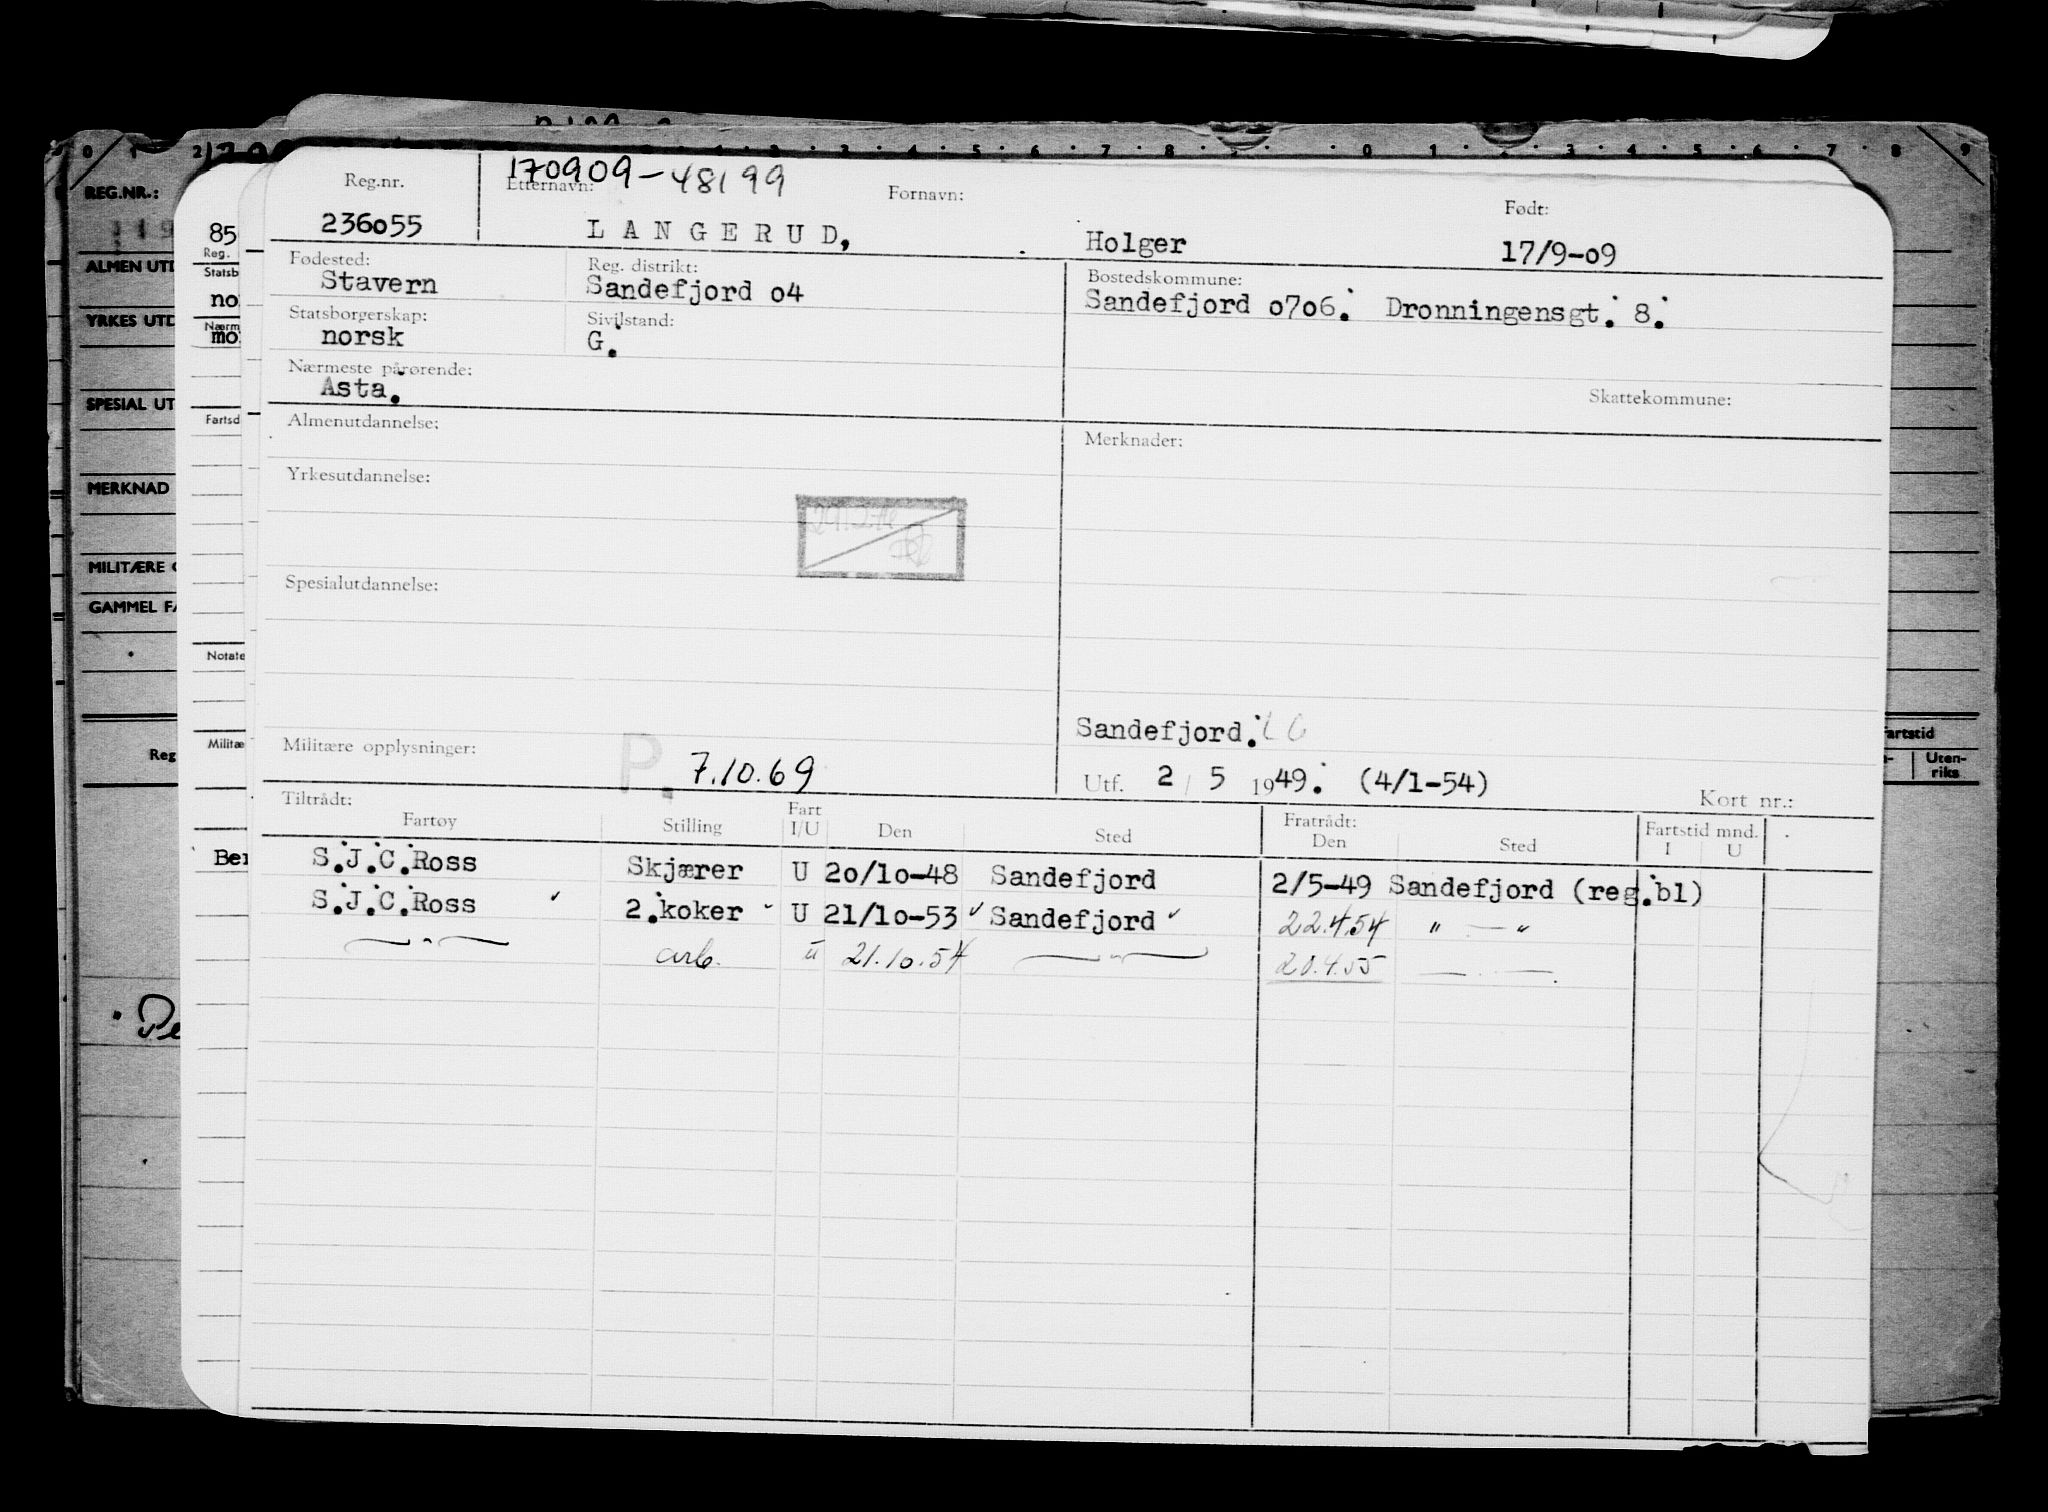 0 1 2 3 4 5 6 7 8 9 0 1 2 3 4 5 6 7 8 9
REG.NR.:
ALMEN UTD
YRKES UTD
SPECIAL UT
MERKNAD
MILITÆRE
GAMMEL FA
Reg
85
Reg.
Statsb
no
Nærm
mo
Fartsd
Notate
Militæ
Ber
170909-48199
Reg.nr. Etternavn: Fornavn: Født:
236055 LANGERUD, Holger 17/9-09
Fødested: Reg. distrikt: Bostedskommune:
Stavern Sandefjord 04 Sandefjord 0706. Dronningensgt. 8.
Statsborgerskap: Sivilstand:
norsk G.
Nærmeste pårørende:
Asta. Skattekommune:
Almenutdannelse: Merknader:
Yrkesutdannelse:
Spesialutdannelse:
Sandefjord.
Militære opplysninger: P. 7.10.69
Utf. 2 / 5 1949. (4/1-54) Kort nr.:
Tiltrådt: Fratrådt:
Fartøy Stilling Fart I/U Den Sted Den Sted Fartstid mnd. I U
S.J.C.Ross Skjærer U 20/10-48 Sandefjord 2/5-49 Sandefjord (reg.bl)
S.J.C.Ross 2.koker U 21/10-53 Sandefjord 22.4.54 " — "
— " — arb. U 21.10.54 — " — 20.4.55 — . —
artstid
Uten-
riks